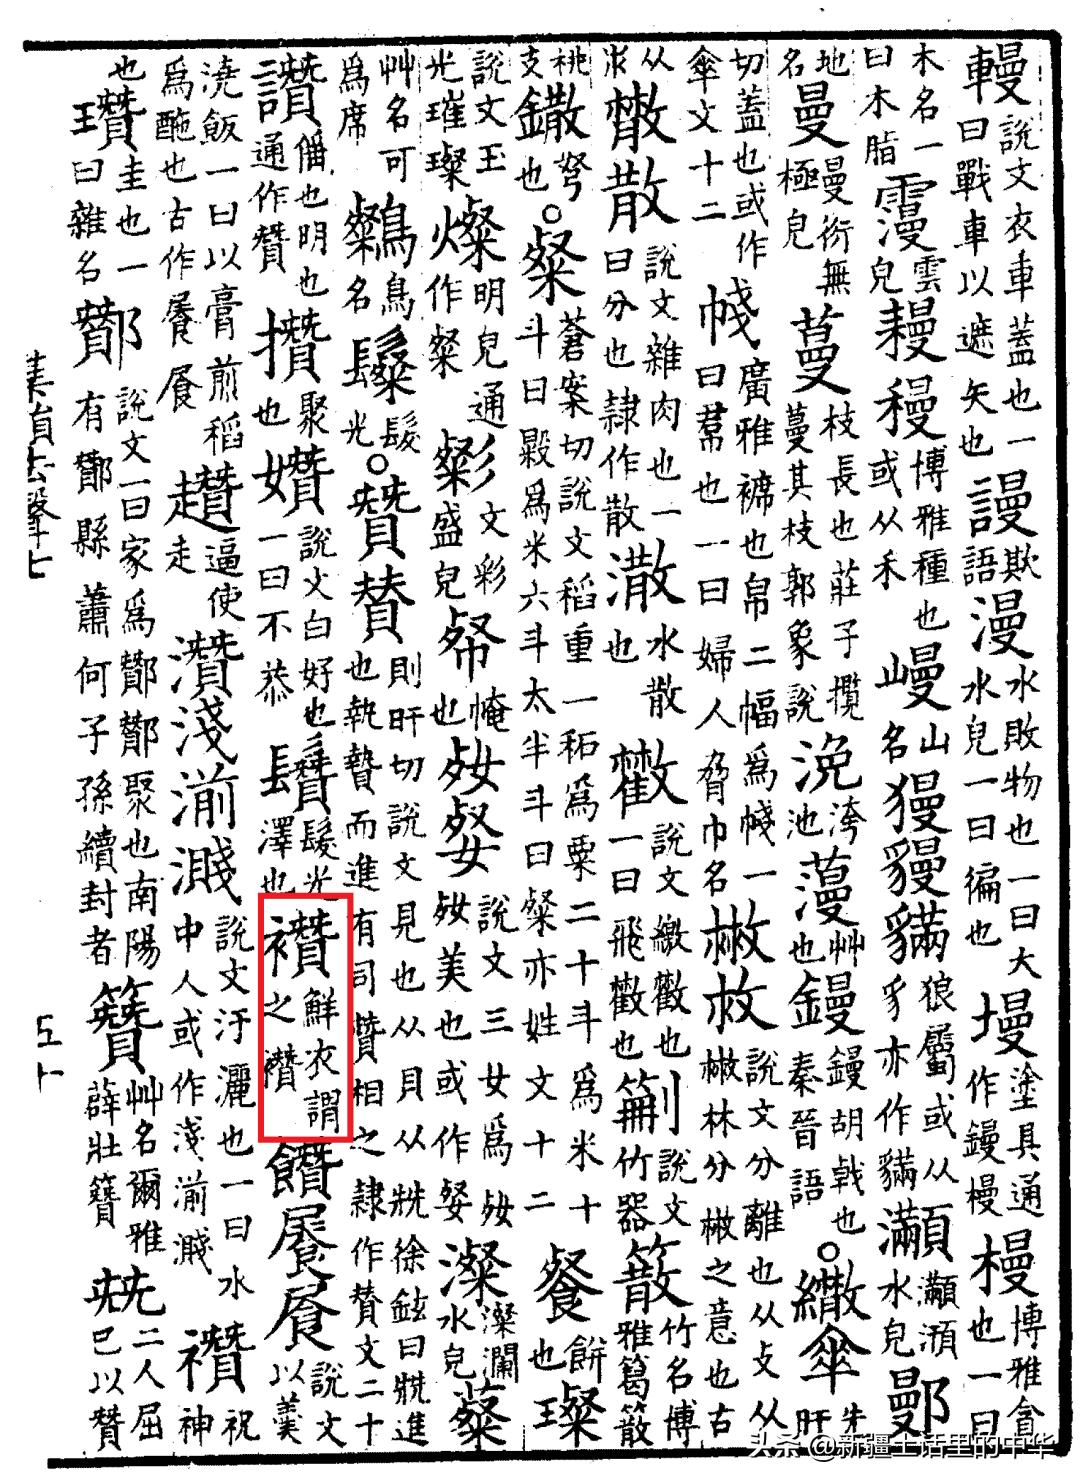 說文衣車蓋也一曰戰車以遮矢也謾欺語漫水敗物也一曰大水皃一曰徧也墁塗具通作鏝槾槾博雅也一曰
木名一曰木脂雲皃博雅種也或从禾山名獌狼屬或从豸亦作水皃鄤
地名曼曼衍無極皃蔓枝長也莊子攬蔓其枝郭象說浼洿池艸也鏝鏝胡戟也秦晉語○繖傘旰
切蓋也或作傘文十二帴廣雅也帛二幅為帴一曰帬也一曰婦人脅巾名說文分離也从攴从𣏟𣏟分㪔之意也古
从𣏟散說文雜肉也一曰分也隸作散潵水散也說文繳也一曰飛也說文竹器竹名博雅
桃支鏾弩也○粲蒼案切說文稻重一䄷為粟二十斗為米十斗曰毇為米六斗太半斗曰粲亦姓文十二餅也璨
說文玉光璀璨燦明皃通作粲文彩盛皃也說文三女為㛑㛑美也或作澯澯瀾水皃
艸名可為席鳥名髮光○贊賛則旰切說文見也从貝从兟徐鉉曰兟進也執贄而進有司贊相之隸作賛文二十
讚偁也明也通作贊攢聚也說文白好也一曰不恭髮光澤也襸鮮衣謂之襸饡說文以羹
澆飯一曰以膏煎稻為酏也古作趲逼使走灒淺湔濺說文汙灑也一曰水中人或作淺湔濺禶祝神
也瓚圭也一曰雜名酇說文一曰家為酇酇聚也南陽有酇縣蕭何子孫續封者艸名爾雅薜牡兟二人屈己以贊
集韻去聲七
五十
头条 @新疆土话里的中华